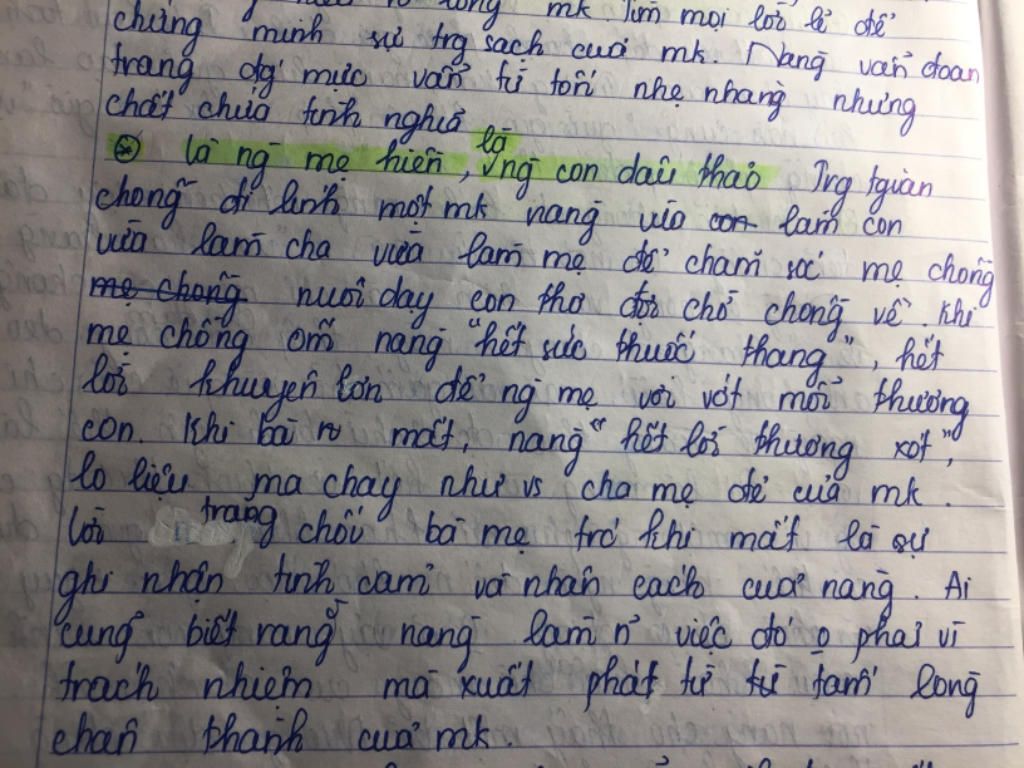 lòng mk. Tìm mọi lời lẽ để
chứng minh sự trg sạch của mk. Nàng vẫn đoan
trang đg mực vẫn từ tốn nhẹ nhàng nhưng
chất chứa tình nghĩa
là ng mẹ hiền, là ng con dâu thảo Trg tgian
chồng đi lính một mk nàng vừa con làm con
vừa làm cha vừa làm mẹ để chăm sóc mẹ chồng
mẹ chồng nuôi dạy con thơ đợi chờ chồng về. Khi
mẹ chồng ốm nàng "hết sức thuốc thang", hết
lời khuyên lơn để ng mẹ vơi vớt mỗi thương
con. Khi bà mất, nàng "hết lời thương xót",
lo liệu ma chay như vs cha mẹ đẻ của mk.
Lời trăng chối bà mẹ trc khi mất là sự
ghi nhận tình cảm và nhân cách của nàng. Ai
cũng biết rằng nàng làm n~ việc đó o phải vì
trách nhiệm mà xuất phát từ từ tấm lòng
chân thành của mk.